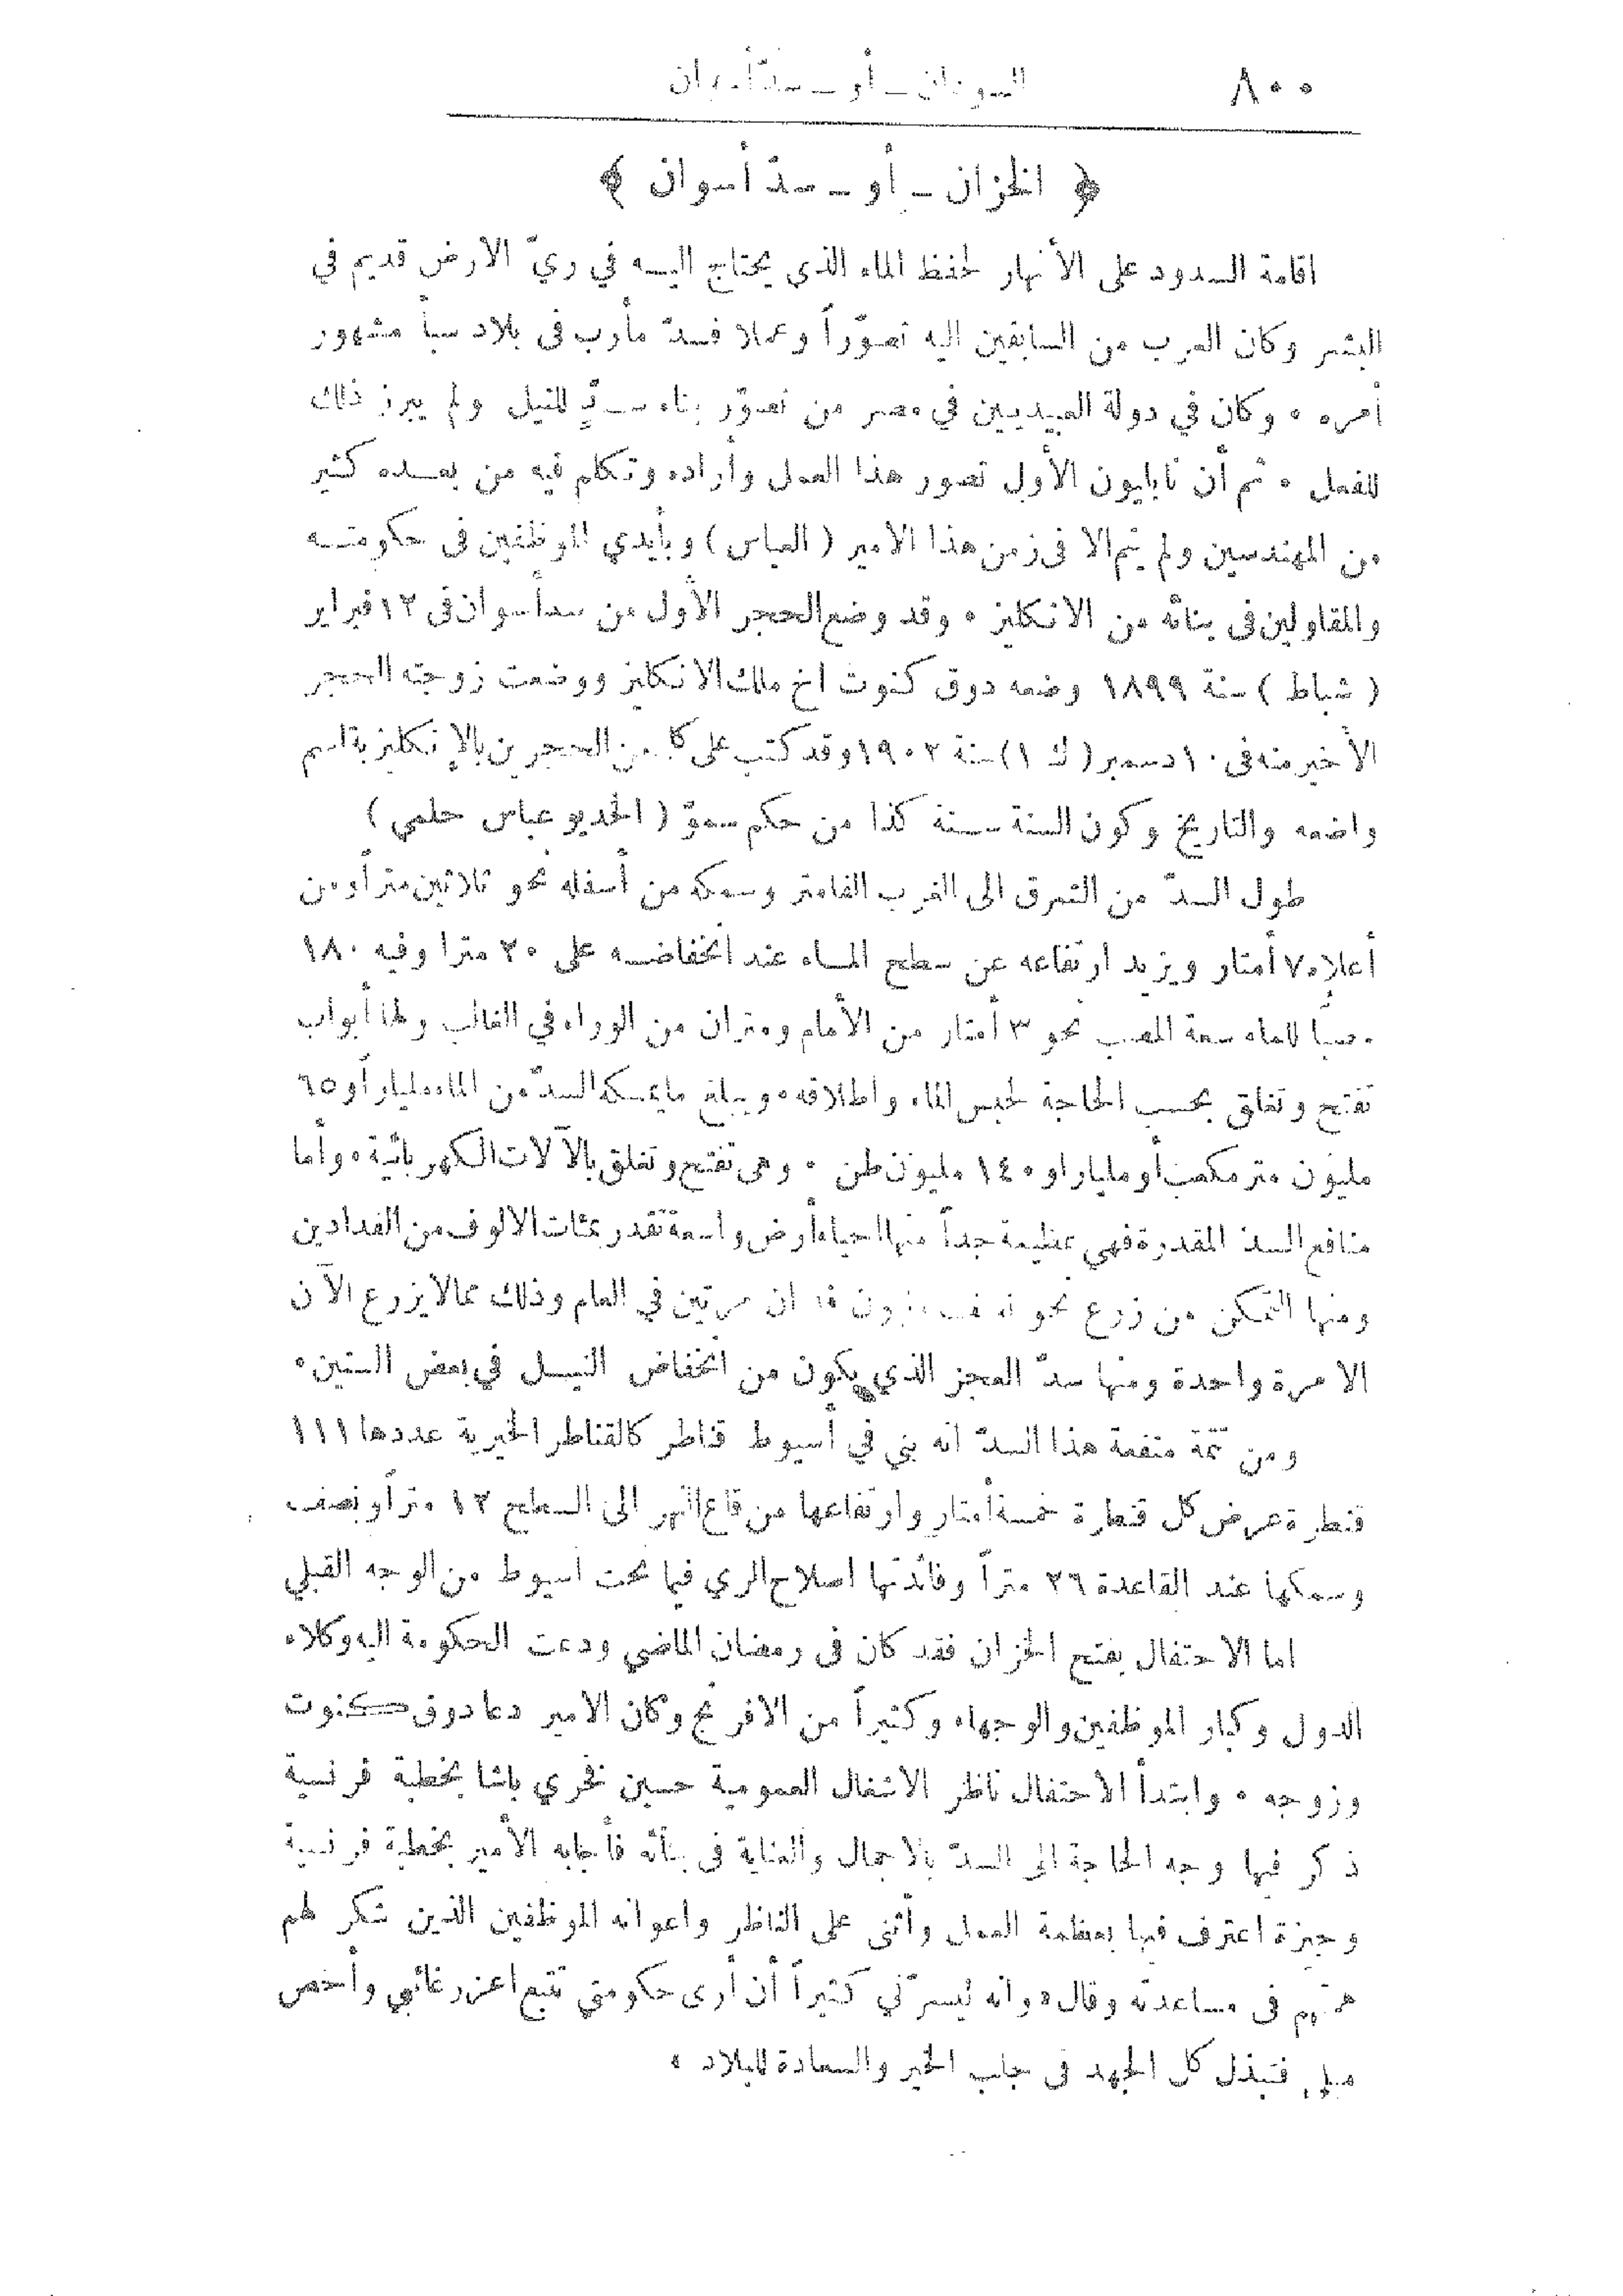 ٨٠٠
السودان ـ أو ـ سدّ أسوان
﴿ الخزان ـ أو ـ سدّ أسوان ﴾
اقامة السدود على الأنهار لحفظ الماء الذي يحتاج اليـه في ريّ الارض قديم في
البشر وكان العرب من السابقين اليه تصوّراً وعملا فسدّ مأرب فى بلاد سبأ مشهور
أمره ٠ وكان في دولة العبيديين في مصر من تصوّر بناء سـدٍّ للنيل ولم يبرز ذلك
للفعل ٠ ثم أن نابليون الأول تصور هذا العمل وأراده وتكلم فيه من بعـده كثير
من المهندسين ولم يتم الا فى زمن هذا الامير ( العباس ) وبأيدي الموظفين فى حكومتـه
والمقاولين فى بنائه من الانكليز ٠ وقد وضع الحجر الأول من سد أسوان فى ١٢ فبراير
( شباط ) سنة ١٨٩٩ وضعه دوق كنوت اخ ملك الانكليز ووضعت زوجته الحجر
الأخير منه فى ١٠ دسمبر ( ك ١ ) سنة ١٩٠٢ وقد كتب على كل من الحجرين بالإنكليزية اسم
واضعه والتاريخ وكون السنة سـنة كذا من حكم سموّ ( الخديو عباس حلمي )
طول السدّ من الشرق الى الغرب الفا متر وسمكه من أسفله نحو ثلاثين متراً ومن
أعلاه ٧ أمتار ويزيد ارتفاعه عن سطح المـاء عند انخفاضـه على ٢٠ مترا وفيه ١٨٠
مصبّاً للماء سعة المصب نحو ٣ أمتار من الأمام ومتران من الوراء في الغالب ولها أبواب
تفتح وتغلق بحسب الحاجة لحبس الماء واطلاقه ٠ ويبلغ ما يمسكه السدّ من الماء مليار أو ٦٥
مليون متر مكعب أو مليار او ١٤٠ مليون طن ٠ وهى تفتح وتغلق بالآلات الكهربائية ٠ وأما
منافع السد المقدرة فهي عظيمة جداً منها احياء أرض واسعة تقدر بمئات الالوف من الفدادين
ومنها التمكن من زرع نحو نصف مليون فدان مرتين في العام وذلك مما لا يزرع الآن
الا مرة واحدة ومنها سدّ العجز الذي يكون من انخفاض النيـل في بعض السنين ٠
ومن تتمة منفعة هذا السدّ انه بني في أسيوط قناطر كالقناطر الخيرية عددها ١١١
قنطرة عرض كل قنطرة خمسة أمتار وارتفاعها من قاع النهر الى السطح ١٢ متراً ونصف
وسمكها عند القاعدة ٢٦ متراً وفائدتها اصلاح الري فيما تحت اسيوط من الوجه القبلي
اما الاحتفال بفتح الخزان فقد كان فى رمضان الماضي ودعت الحكومة اليه وكلاء
الدول وكبار الموظفين والوجهاء وكثيراً من الافرنج وكان الامير دعا دوق كنوت
وزوجه ٠ وابتدأ الاحتفال ناظر الاشغال العمومية حسين فخري باشا بخطبة فرنسية
ذكر فيها وجه الحاجة الى السدّ بالاجمال والعناية فى بنائه فأجابه الأمير بخطبة فرنسية
وجيزة اعترف فيها بعظمة العمل وأثنى على الناظر واعوانه الموظفين الذين شكر لهم
همتهم فى مساعدته وقال « وانه ليسرّني كثيراً أن أرى حكومتي تتبع اعز رغائبي وأخص
ميلي فتبذل كل الجهد فى جلب الخير والسعادة للبلاد »